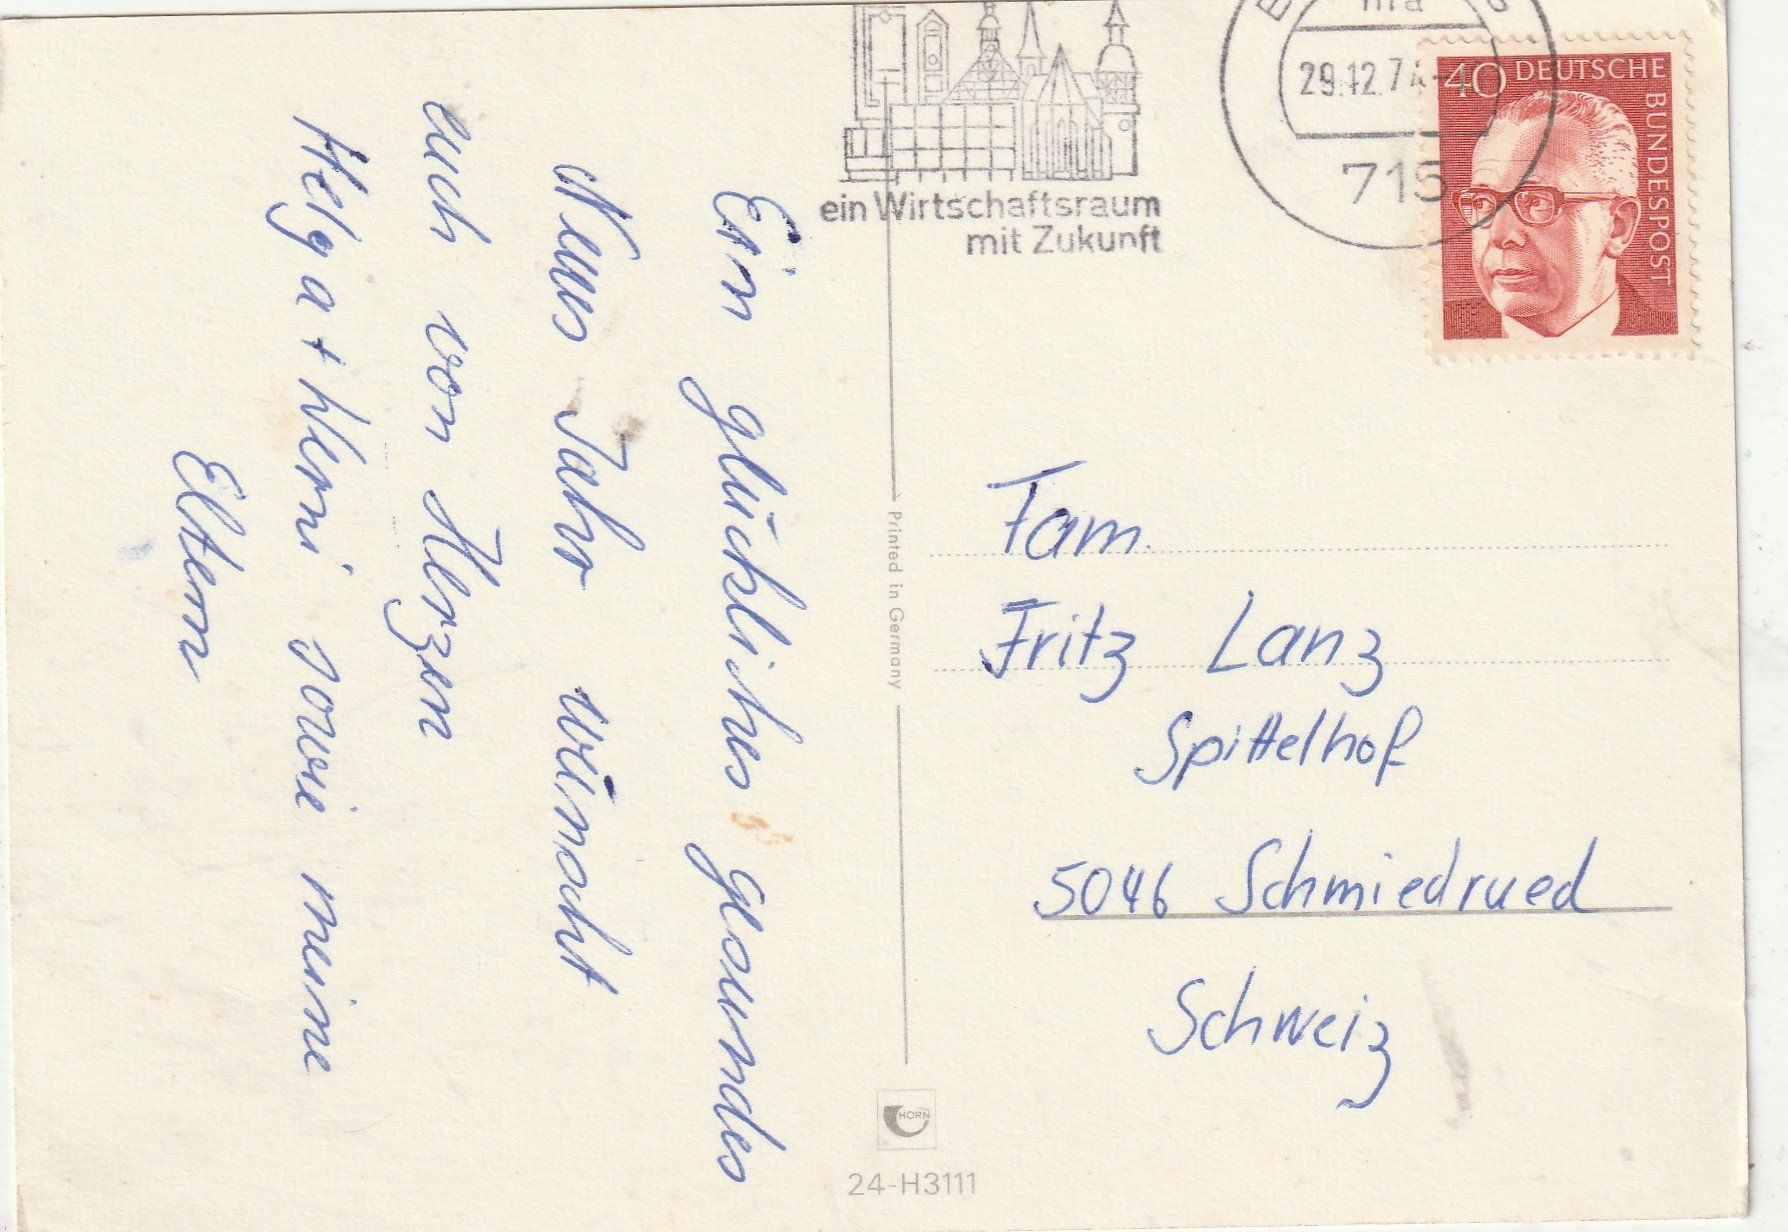 Ein glückliches gesundes
Neues Jahr wünscht
euch von Herzen
Helga + Werni sowie meine
Eltern
ein Wirtschaftsraum
mit Zukunft
29.12.74
715
40 DEUTSCHE
BUNDESPOST
Printed in Germany
Fam.
Fritz Lanz
Spittelhof
5046 Schmiedrued
Schweiz
HORN
24-H3111